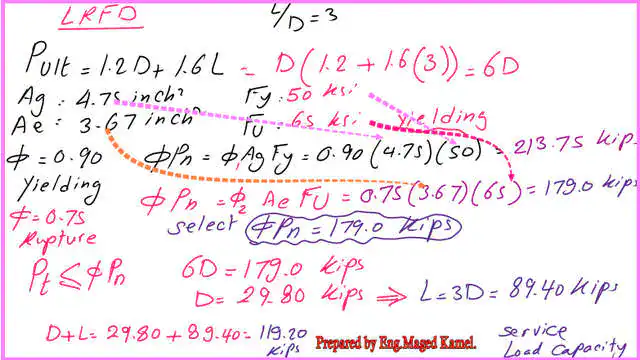 LRFD
L/D = 3
Pult = 1.2D + 1.6L = D(1.2 + 1.6(3)) = 6D
Ag = 4.75 inch² Fy = 50 ksi
Ae = 3.67 inch² Fu = 65 ksi yielding
Φ = 0.90 ΦPn = Φ₁AgFy = 0.90(4.75)(50) = 213.75 Kip
Yielding
ΦPn = Φ₂ Ae Fu = 0.75(3.67)(65) = 179.0 Kips
Φ = 0.75
Rupture
select ΦPn = 179.0 Kips
Pt ≤ ΦPn 6D = 179.0 Kips
D = 29.80 Kips ⇒ L = 3D = 89.40 Kips
D+L = 29.80 + 89.40 = 119.20 Kips
Prepared by Eng.Maged Kamel.
service
Load Capacity